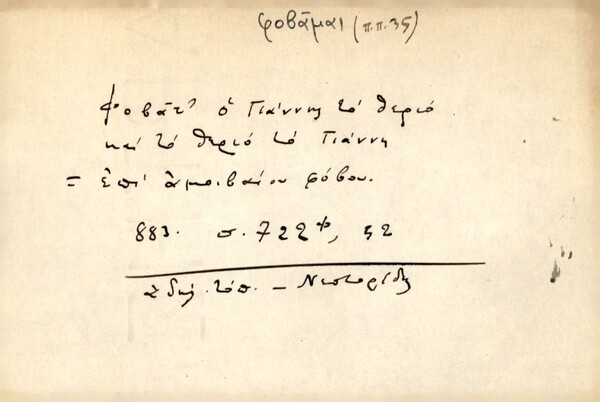 φοβᾶμαι (π.π. 35)
Φοβᾶτ' ὁ Γιάννης τὸ θεριό
καὶ τὸ θεριό τὸ Γιάννη
= ἐπὶ ἀμοιβαίου φόβου.
883. σ. 722 52
τόπ. –